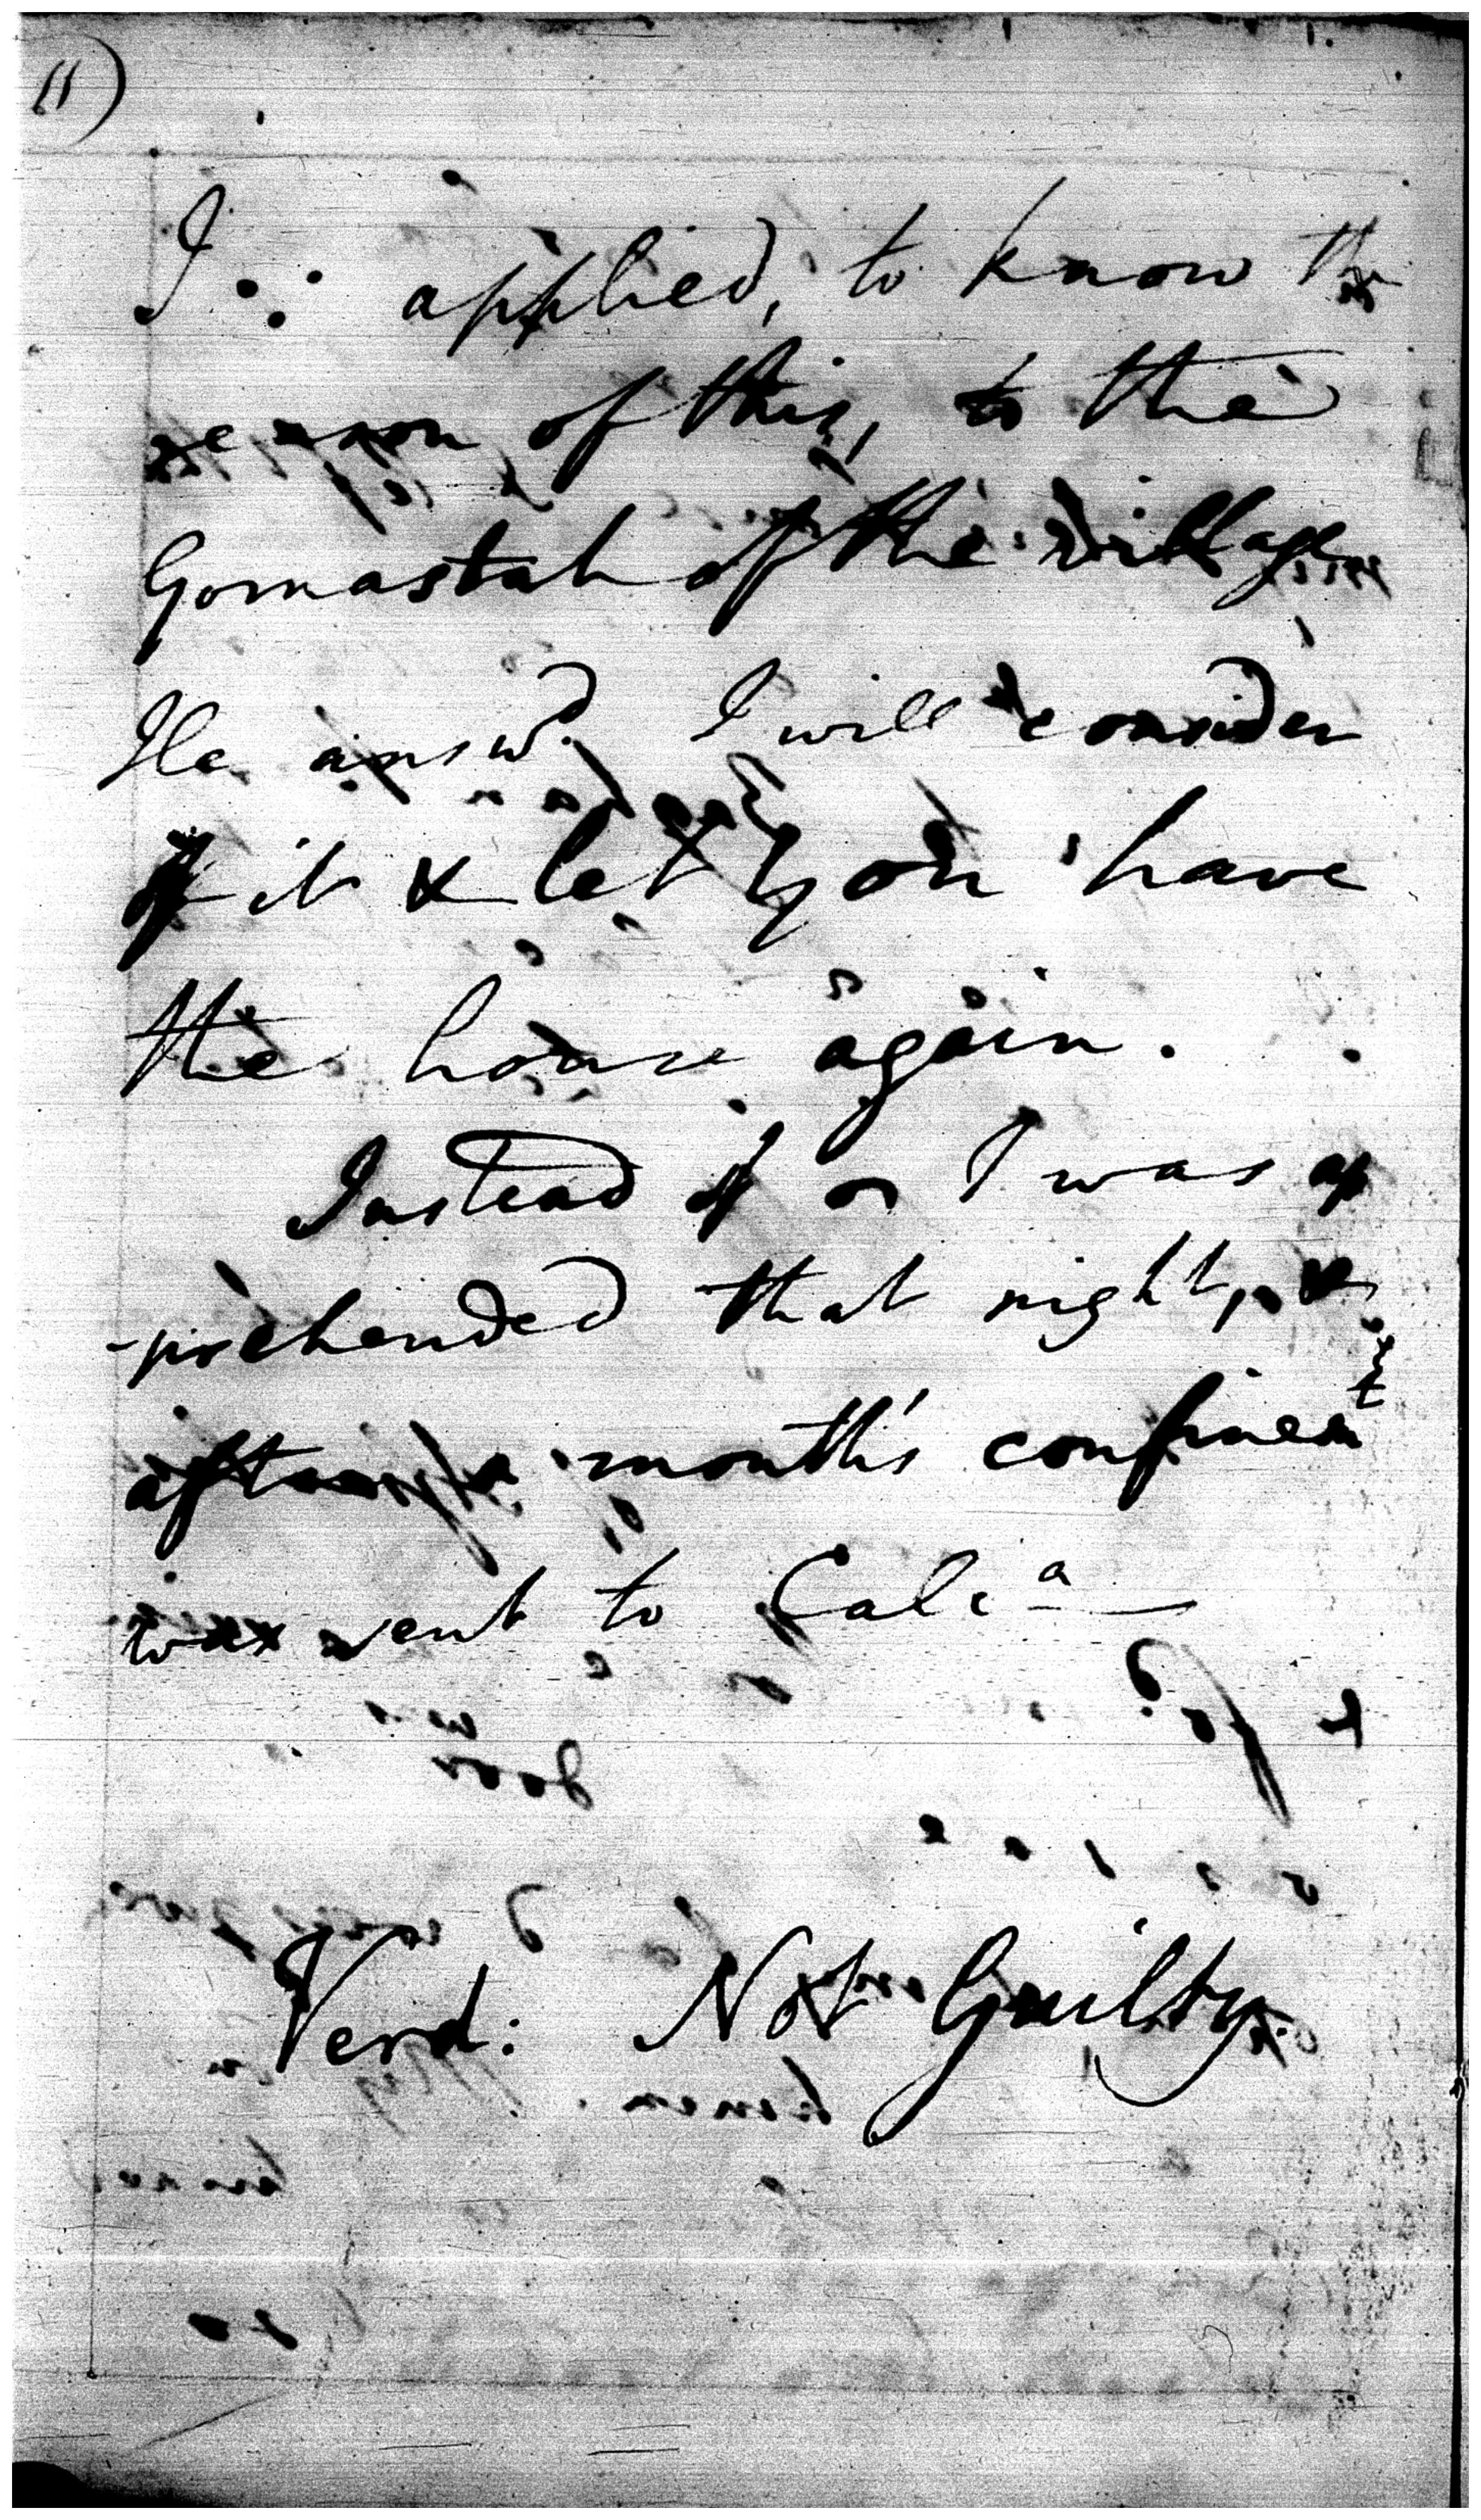 11)
I ∴ applied, to know the
reason of this, to the
Gomastah of the village
He answd. I will consider
of it & let you have
the house again.
Instead of I was ap
-prehended that night, &
after a month's confinemt
was sent to Calca
Verd: Not Guilty.